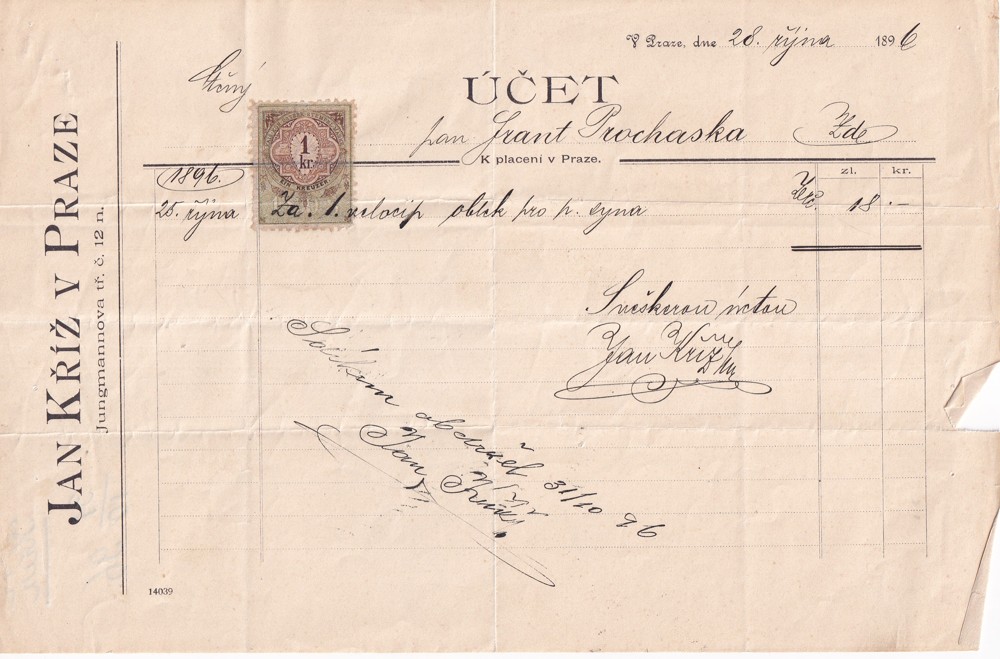 V Praze, dne 28. října 1896
Ctěný
ÚČET
pan Frant Prochaska Zde
K placení v Praze.
JAN KŘÍŽ V PRAZE
Jungmannova tř. č. 12 n.
1
kr.
EIN KREUZER
zl. kr.
1896.
25. října Za 1. velocip oblek pro p. syna 18 . —
úctou
Jan Kříž
obdržel 31/10 96
Jan Kříž
14039